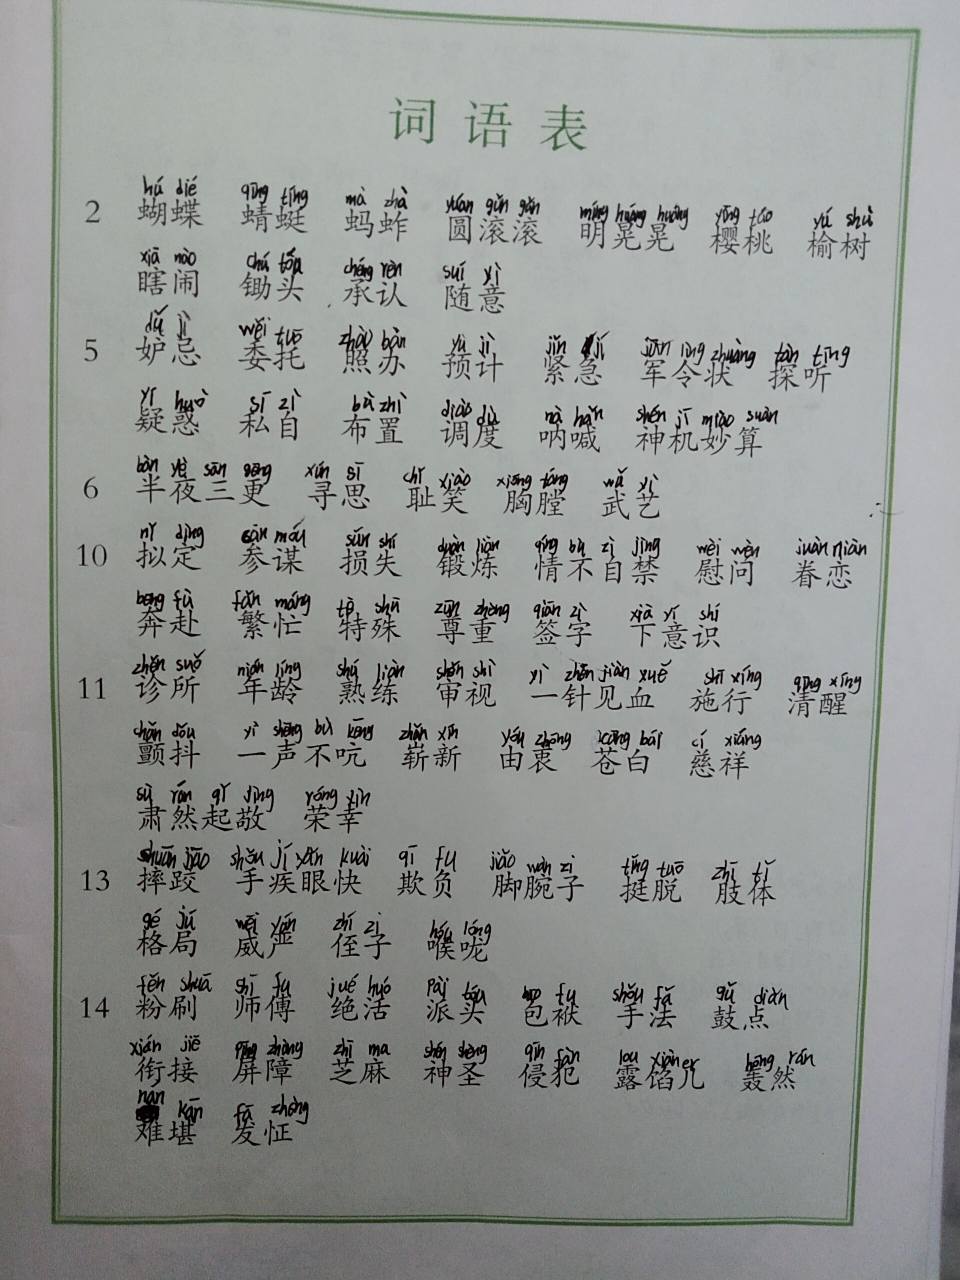 词语表
hú dié qīng tíng mà zhà yuán gǔn gǔn míng huǎng huǎng yīng táo yú shù
2 蝴蝶 蜻蜓 蚂蚱 圆滚滚 明晃晃 樱桃 榆树
xiā nào chú tóu chéng rèn suí yì
瞎闹 锄头 承认 随意
dù jì wěi tuō zhào bàn yù jì jǐn jí jūn lìng zhuàng tàn tīng
5 妒忌 委托 照办 预计 紧急 军令状 探听
yí huò sī zì bù zhì diào dù nà hǎn shén jī miào suàn
疑惑 私自 布置 调度 呐喊 神机妙算
bàn yè sān gēng xún sī chǐ xiào xiōng táng wǔ yì
6 半夜三更 寻思 耻笑 胸膛 武艺
nǐ dìng cān móu sǔn shī duàn liàn qíng bù zì jīng wèi wèn juàn niàn
10 拟定 参谋 损失 锻炼 情不自禁 慰问 眷恋
bēng fù fán máng tè shū zūn zhòng qiān zì xià yí shí
奔赴 繁忙 特殊 尊重 签字 下意识
zhěn suǒ nián líng shú liàn shěn shì yì zhēn jiàn xuě shī xíng qīng xǐng
11 诊所 年龄 熟练 审视 一针见血 施行 清醒
chàn dǒu yì shēng bù kēng zhǎn xīn yóu zhōng cāng bái cí xiáng
颤抖 一声不吭 崭新 由衷 苍白 慈祥
sù rán qǐ jìng róng xìn
肃然起敬 荣幸
shuāi jiāo shǒu jí yǎn kuài qī fu jiǎo wàn zi tǐng tuō zhī tǐ
13 摔跤 手疾眼快 欺负 脚腕子 挺脱 肢体
gé jú wēi yán zhí zi hóu lóng
格局 威严 侄子 喉咙
fěn shuā shī fu jué huó pài tóu bāo fu shǒu fǎ gǔ diǎn
14 粉刷 师傅 绝活 派头 包袱 手法 鼓点
xián jiē píng zhàng zhī ma shén shèng qīn fàn lòu xiànr hōng rán
衔接 屏障 芝麻 神圣 侵犯 露馅儿 轰然
nan kān fā zhèng
难堪 发怔